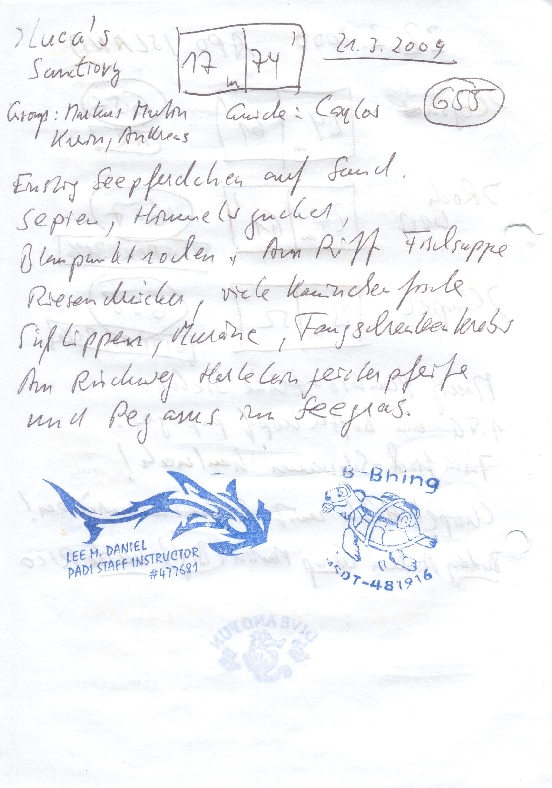 Luca's
Sanctiory
17 m 74'
21.3.2009
655
Group: Markus Martin
Karin, Andreas
Guide: Carlos
Einstieg Seepferdchen auf Sand.
Sepien, Himmelsgucker,
Blaupunktrochen, Am Riff Fischsuppe
Riesendrücker, viele Kaninchenfische
Süßlippen, Muräne, Fangschreckenkrebs
Am Rückweg Harlekingeisterpfeife
und Pegasus im Seegras.
LEE M. DANIEL
PADI STAFF INSTRUCTOR
#477681
B-Bhing
MSDT-481916
DIVE AND FUN